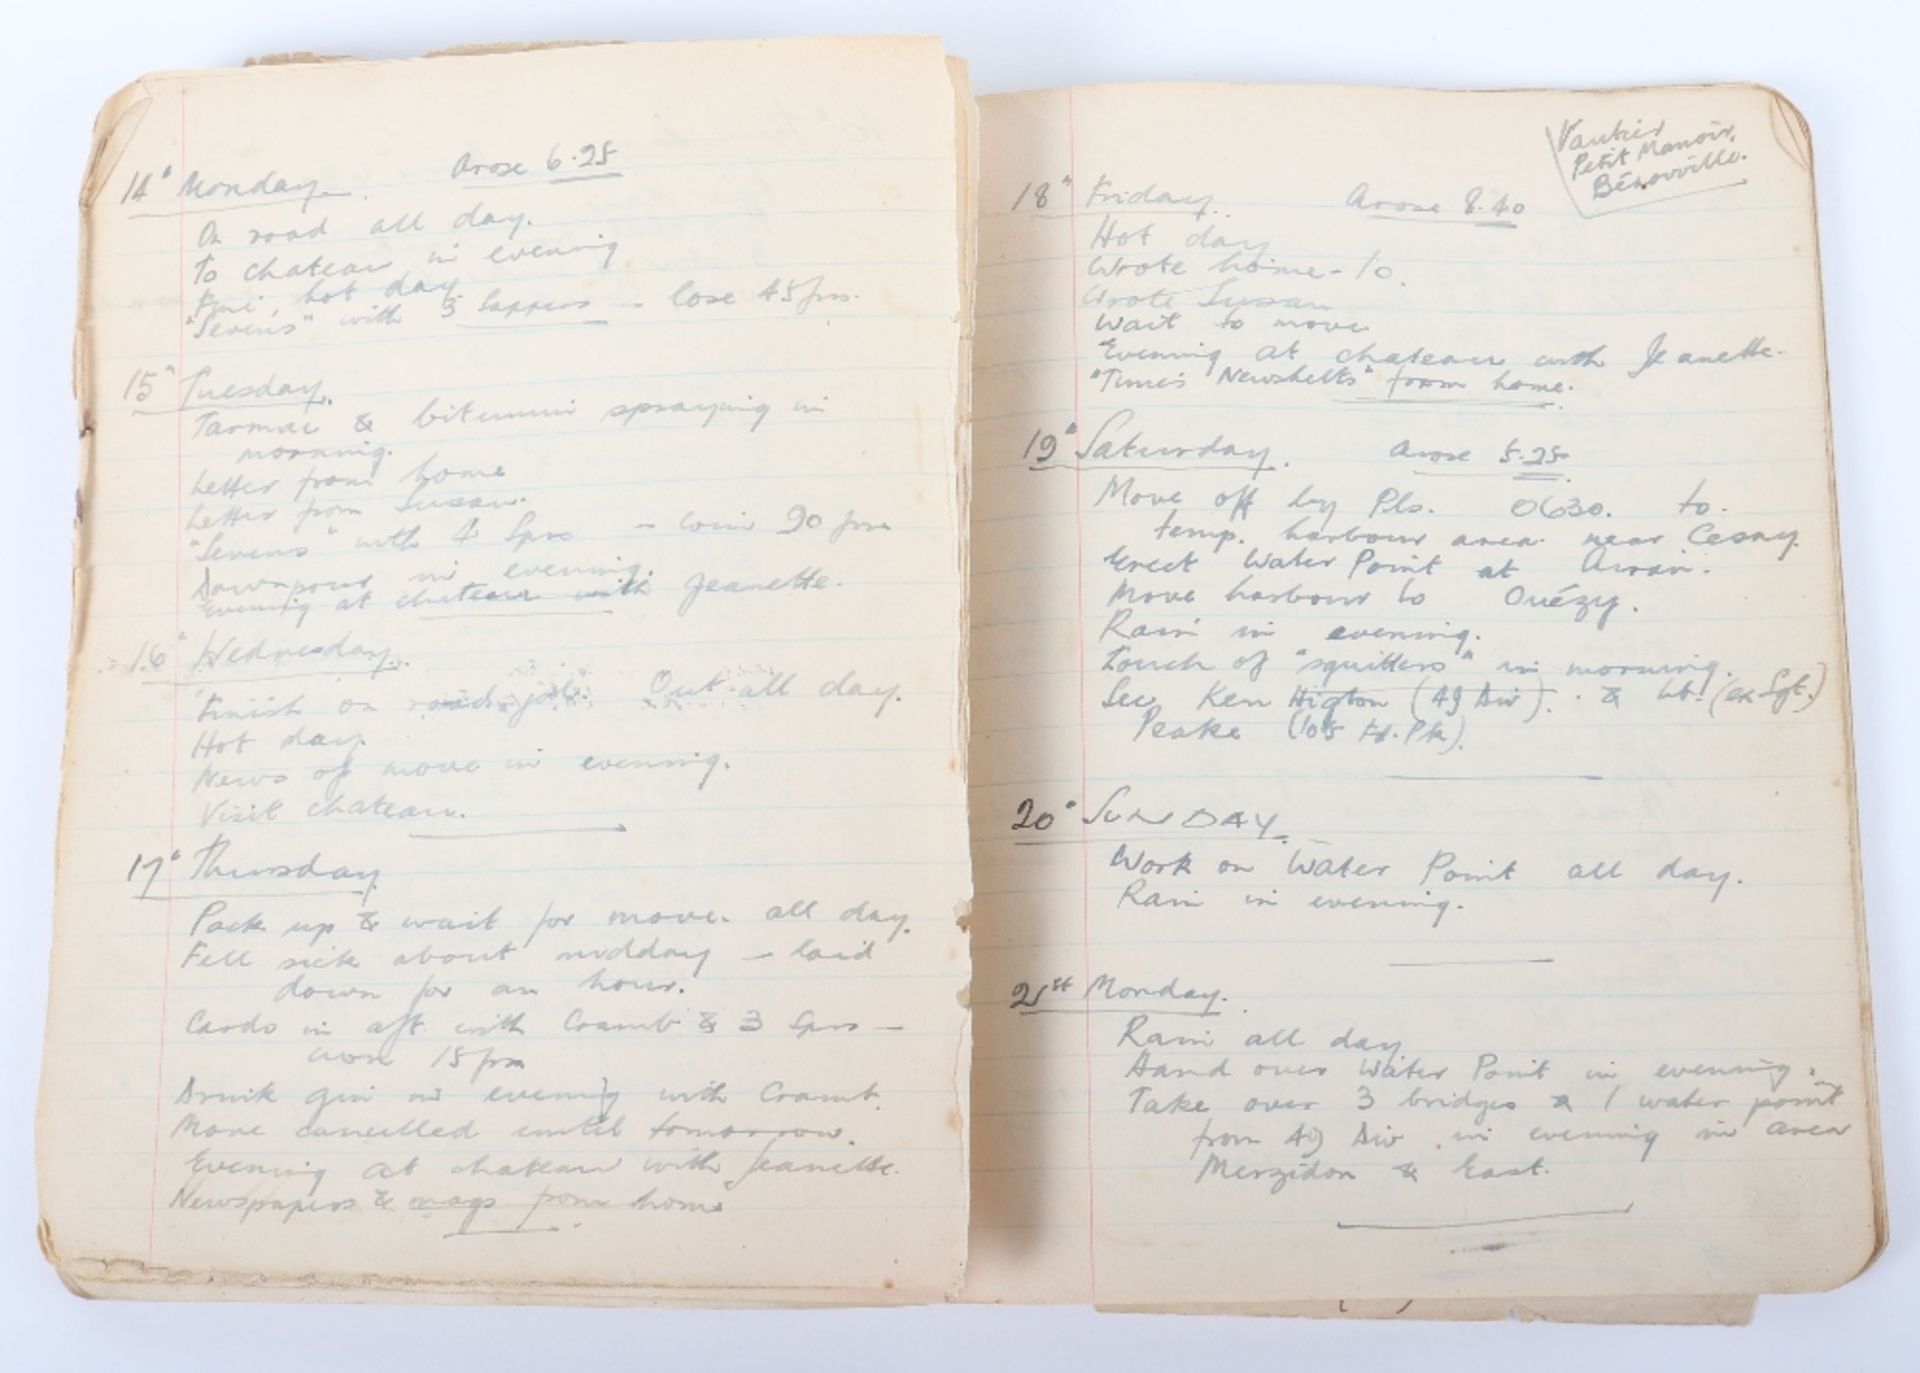 14" Monday. Arose 6.25
On road all day.
To chateau in evening
Fine, hot day
"Sevens" with 3 Sappers - lose 45 frs.
15" Tuesday.
Tarmac & bitumin spraying in
morning.
Letter from home
Letter from Susan.
"Sevens" with 4 Sprs - win 90 frs
Downpour in evening.
Evening at chateau with Jeanette.
16" Wednesday.
Finish on road job. Out all day.
Hot day
News of move in evening.
Visit chateau.
17" Thursday
Pack up & wait for move. all day.
Fell sick about midday - laid
down for an hour.
Cards in aft. with Cramb & 3 Sprs -
won 15 frs
Drink gin in evening with Cramb.
Move cancelled until tomorrow.
Evening at chateau with Jeanette.
Newspapers & mags from home
Vautier
Petit Manoir,
Bénouville.
18" Friday. Arose 8.40
Hot day
Wrote home - 10.
Wrote Susan
Wait to move
Evening at chateau with Jeanette.
"Times Newshetts" from home.
19" Saturday. Arose 5.25
Move off by Pls. 0630. to.
temp. harbour area near Cesny.
Erect Water Point at Airan.
Move harbour to Ouézy.
Rain in evening.
Touch of "squitters" in morning.
See Ken Higton (49 Div). & Lt. (ex Sgt.)
Peake (105 Fd. Pk).
20" SUNDAY.
Work on Water Point all day.
Rain in evening.
21st Monday.
Rain all day
Hand over Water Point in evening.
Take over 3 bridges & 1 water point
from 49 Div in evening in area
Merzidon & East.